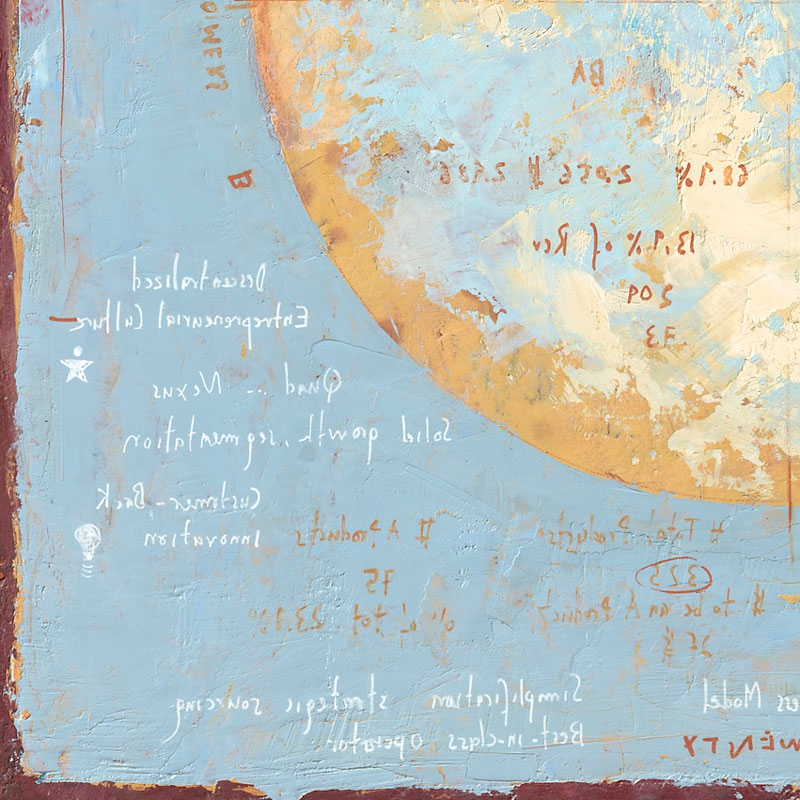 OMERS
B
BA
68.1% 2,076
13.1% of Rev
POS
Decentralised
Entrepreneurial Culture
Quad -- Nexus
Solid growth, segmentation
Customer-Back
Innovation
# A Products
75
% of tot 23.1%
# Total Products
325
# to be an A Product
Simplification strategic sourcing
Best-in-class Operator
Model